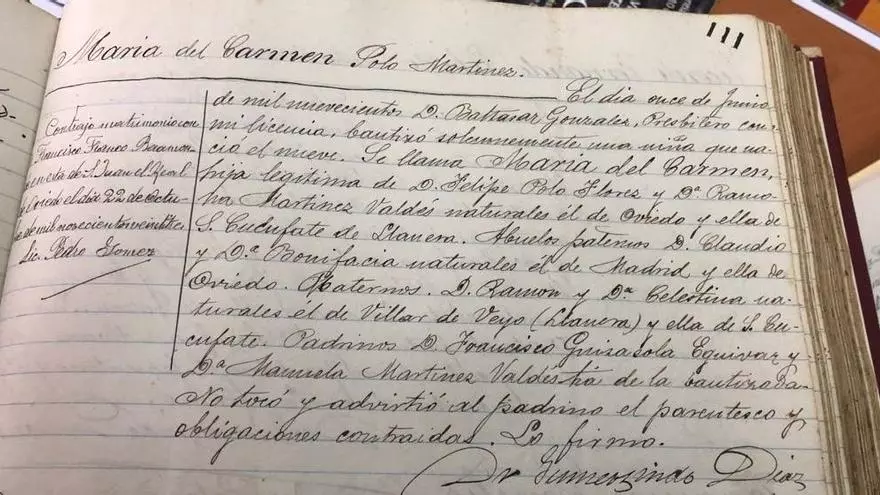 111
Maria del Carmen Polo Martinez.
Contrajo matrimonio con
Francisco Franco Baamon-
en esta de S. Juan el Real
de Oviedo el día 22 de Octu-
de mil novecientos veintitres
Lic. Pedro Gomez
El dia once de Junio
de mil nuevecientos D. Baltasar Gonzalez, Presbitero con
mi licencia, bautizó solemnemente una niña que na-
cio el nueve. Se llama Maria del Carmen,
hija legitima de D. Felipe Polo Florez y Dª. Ramo-
na Martinez Valdés naturales él de Oviedo y ella de
S. Cucufate de Llanera. Abuelos paternos D. Claudio
y D.ª Bonifacia naturales él de Madrid y ella de
Oviedo. Maternos. D. Ramon y Dª Celestina na-
turales él de Villar de Veyo (Llanera) y ella de S. Cu-
cufate. Padrinos D. Francisco Guisasola Equivar y
Dª Manuela Martinez Valdés tia de la bautizada
No tocó y advirtió al padrino el parentesco y
obligaciones contraidas. Lo firmo.
Dr Gumersindo Diaz